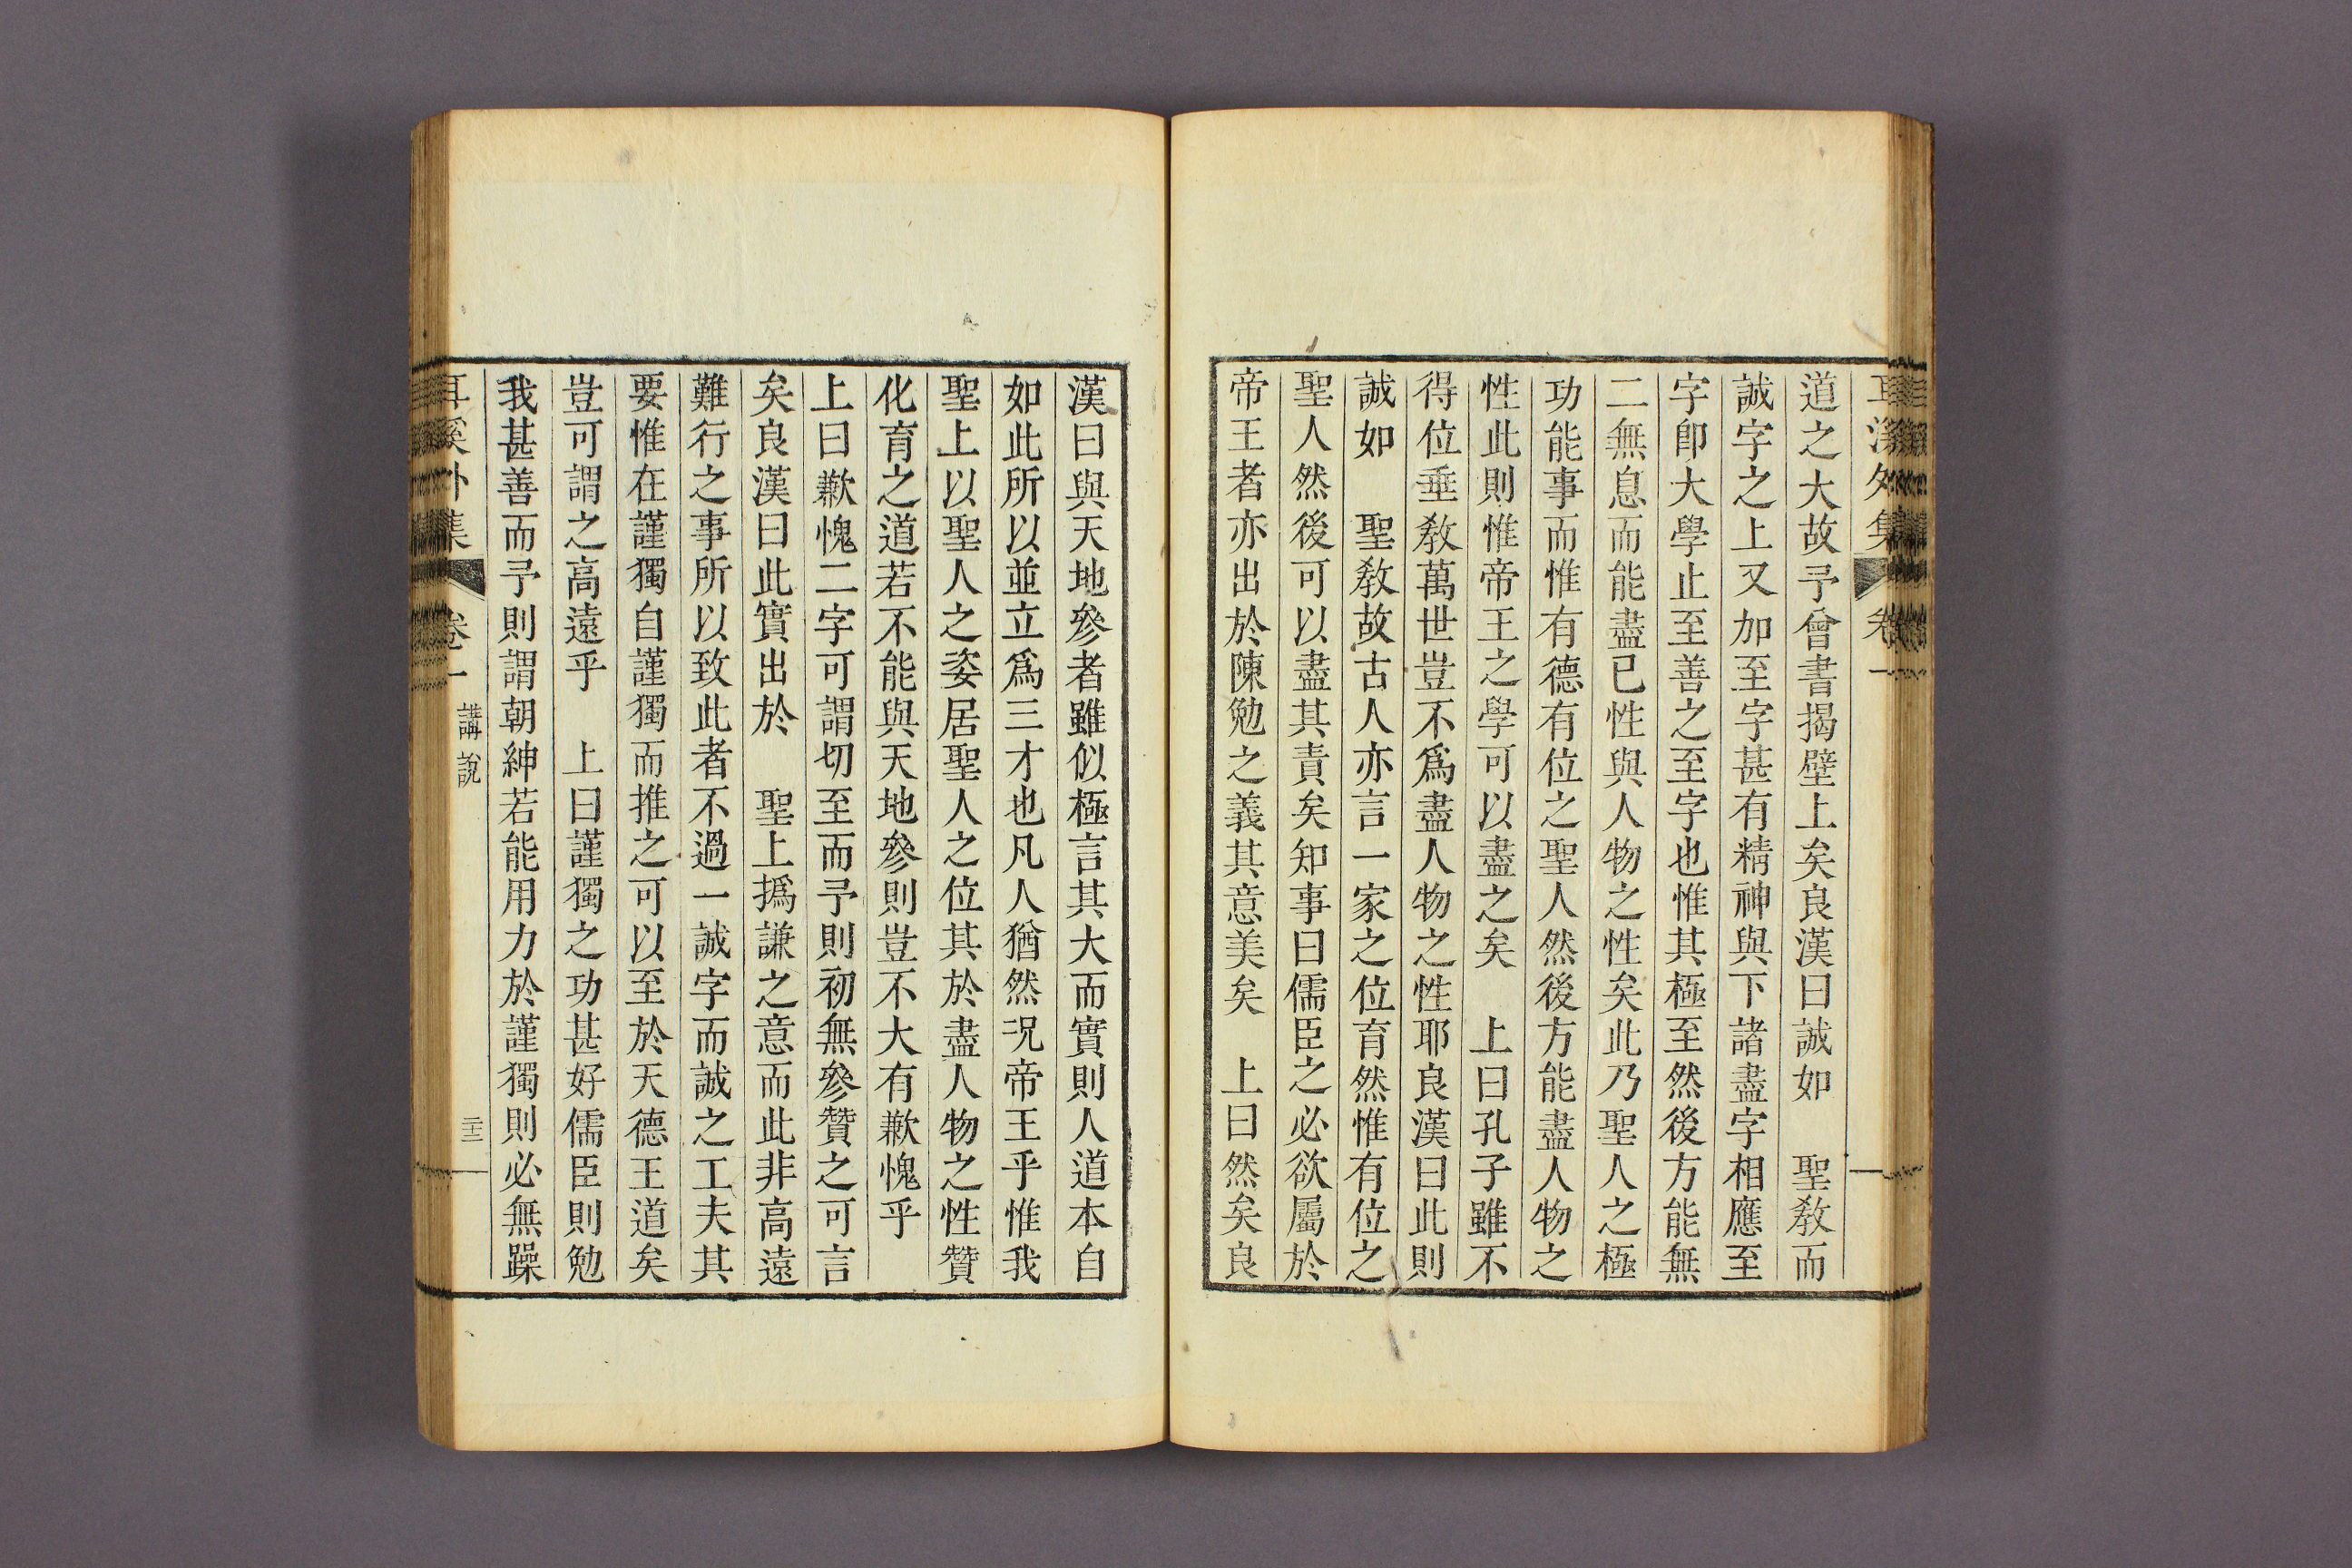 耳溪外集 卷一
道之大故予曾書揭壁上矣良漢曰誠如 聖教而
誠字之上又加至字甚有精神與下諸盡字相應至
字卽大學止至善之至字也惟其極至然後方能無
二無息而能盡已性與人物之性矣此乃聖人之極
功能事而惟有德有位之聖人然後方能盡人物之
性此則惟帝王之學可以盡之矣 上曰孔子雖不
得位垂教萬世豈不爲盡人物之性耶良漢曰此則
誠如 聖教故古人亦言一家之位育然惟有位之
聖人然後可以盡其責矣知事曰儒臣之必欲屬於
帝王者亦出於陳勉之義其意美矣 上曰然矣良
漢曰與天地參者雖似極言其大而實則人道本自
如此所以並立爲三才也凡人猶然况帝王乎惟我
聖上以聖人之姿居聖人之位其於盡人物之性贊
化育之道若不能與天地參則豈不大有歉愧乎
上曰歉愧二字可謂切至而予則初無參贊之可言
矣良漢曰此實出於 聖上撝謙之意而此非高遠
難行之事所以致此者不過一誠字而誠之工夫其
要惟在謹獨自謹獨而推之可以至於天德王道矣
豈可謂之高遠乎 上曰謹獨之功甚好儒臣則勉
我甚善而予則謂朝紳若能用力於謹獨則必無躁
耳溪外集 卷一 講說 二十三